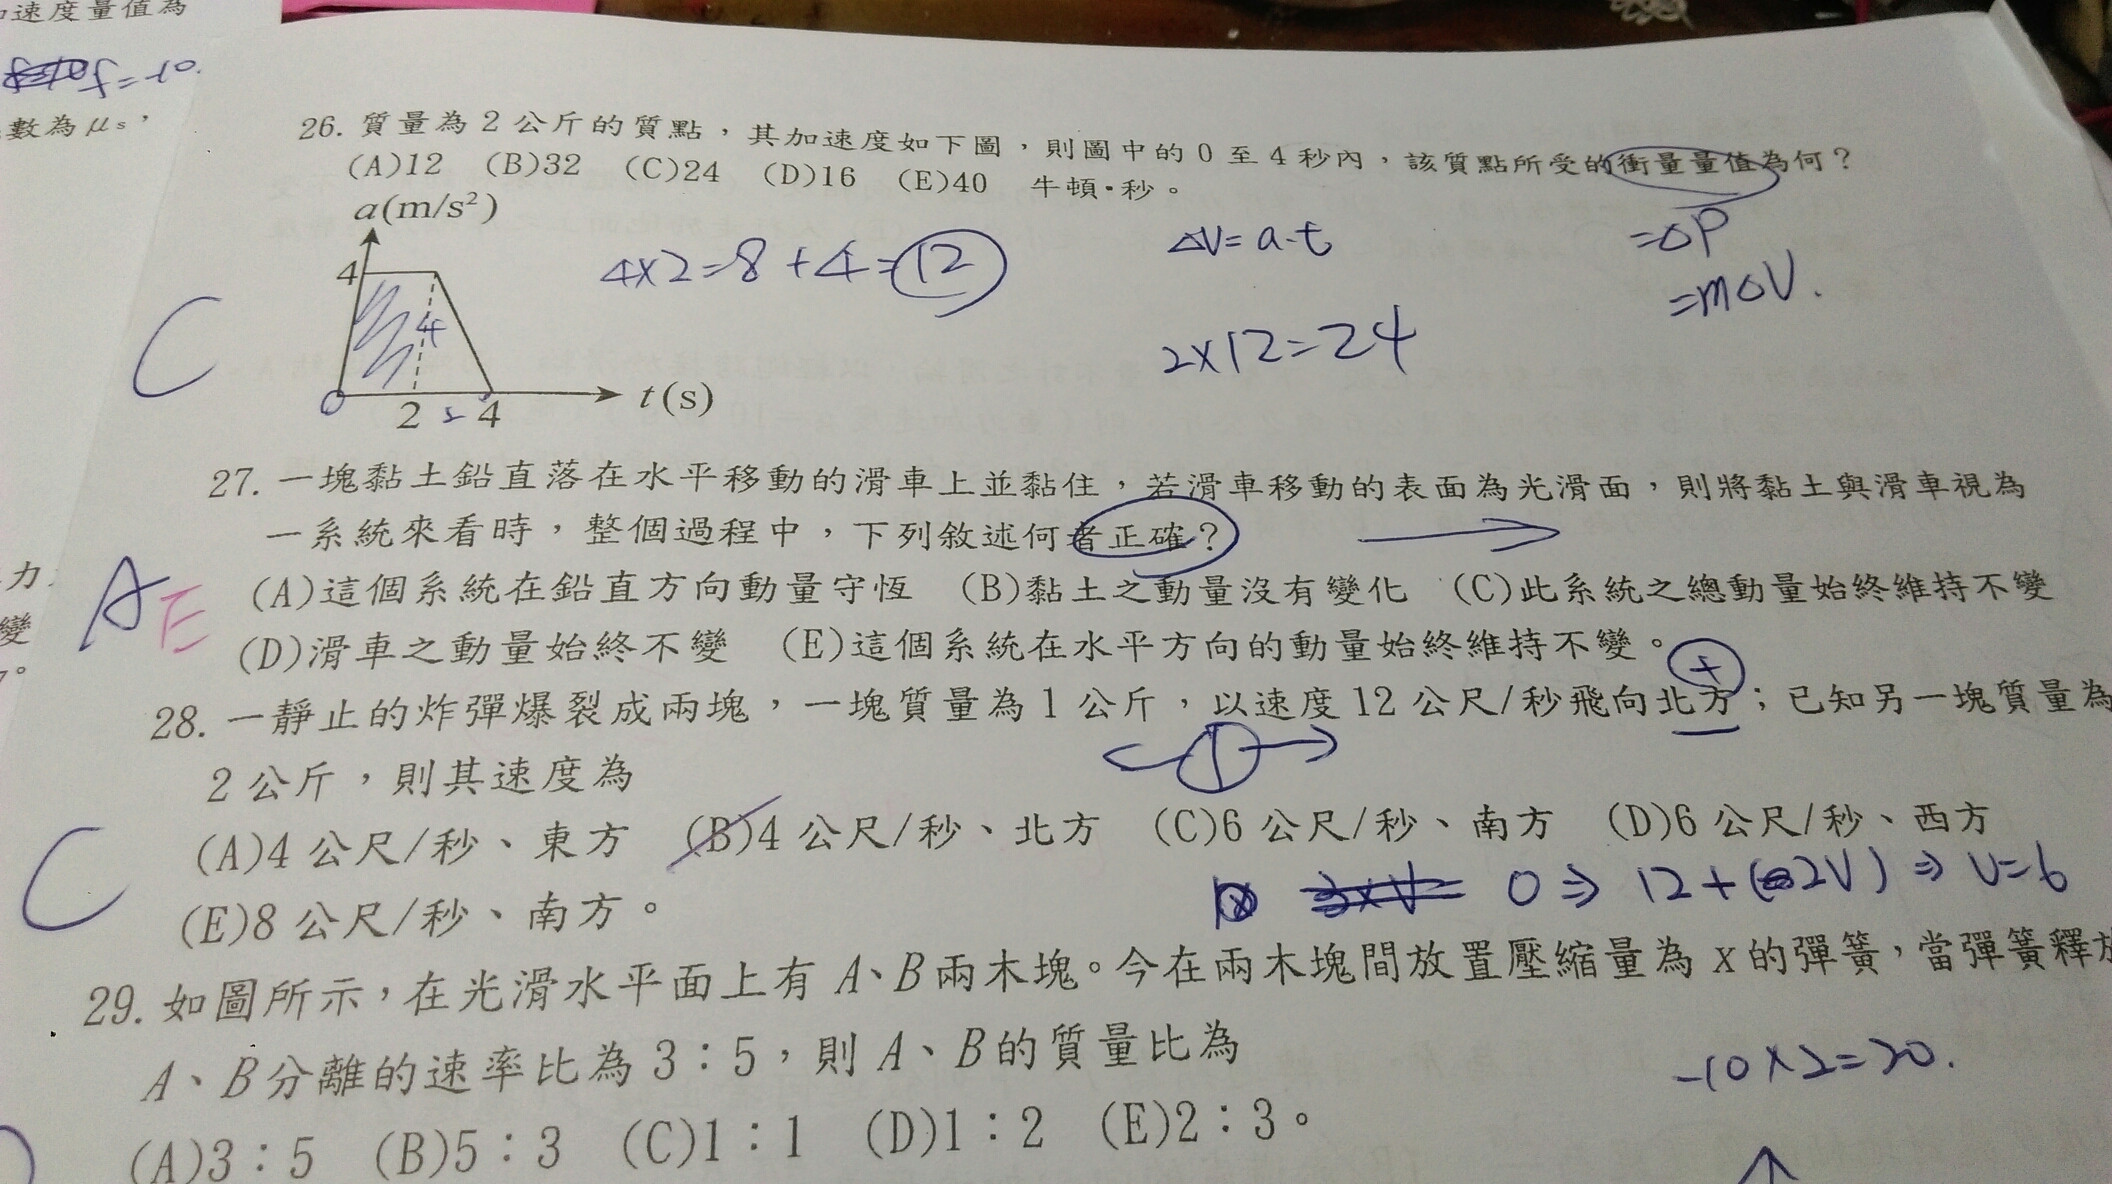 速度量值為
f=10.
數為μs，
26. 質量為 2 公斤的質點，其加速度如下圖，則圖中的 0 至 4 秒內，該質點所受的衝量量值為何？
(A)12 (B)32 (C)24 (D)16 (E)40 牛頓·秒。
a(m/s²)
4
4
0
2
2
4
t(s)
4×2=8+4=12
ΔV=a·t
=ΔP
=mΔV.
2×12=24
C
27. 一塊黏土鉛直落在水平移動的滑車上並黏住，若滑車移動的表面為光滑面，則將黏土與滑車視為
一系統來看時，整個過程中，下列敘述何者正確？
A E
(A)這個系統在鉛直方向動量守恆 (B)黏土之動量沒有變化 (C)此系統之總動量始終維持不變
(D)滑車之動量始終不變 (E)這個系統在水平方向的動量始終維持不變。
力
變
+
28. 一靜止的炸彈爆裂成兩塊，一塊質量為 1 公斤，以速度 12 公尺/秒飛向北方；已知另一塊質量為
2 公斤，則其速度為
C
(A)4 公尺/秒、東方 (B)4 公尺/秒、北方 (C)6 公尺/秒、南方 (D)6 公尺/秒、西方
(E)8 公尺/秒、南方。
0⇒12+(2V)⇒V=6
29. 如圖所示，在光滑水平面上有 A、B 兩木塊。今在兩木塊間放置壓縮量為 x 的彈簧，當彈簧釋放
A、B 分離的速率比為 3：5，則 A、B 的質量比為
-10×2=20.
(A)3：5 (B)5：3 (C)1：1 (D)1：2 (E)2：3。